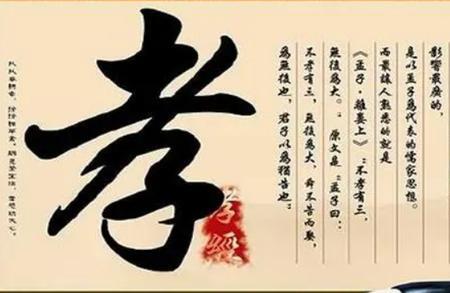 影響最廣的,
是以孟子爲代表的儒家思想。
而最讓人熟悉的就是
《孟子·離婁上》:不孝有三,
無後爲大。 原文是:孟子曰:
不孝有三,無後爲大,舜不告而娶,
爲無後也,君子以爲猶告也。
孝
孝經